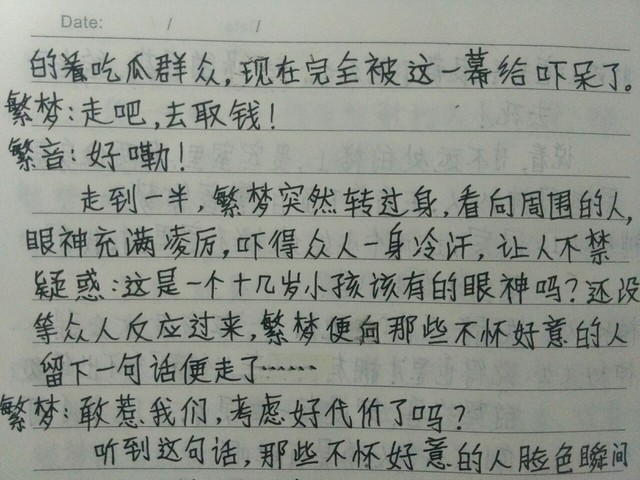 Date: / /
的着吃瓜群众,现在完全被这一幕给吓呆了。
繁梦:走吧,去取钱!
繁音:好嘞!
走到一半,繁梦突然转过身,看向周围的人,
眼神充满凌厉,吓得众人一身冷汗,让人不禁
疑惑:这是一个十几岁小孩该有的眼神吗?还没
等众人反应过来,繁梦便向那些不怀好意的人
留下一句话便走了……
繁梦:敢惹我们,考虑好代价了吗?
听到这句话,那些不怀好意的人脸色瞬间